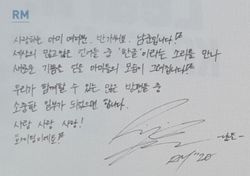 RM
사랑하는 아미 여러분, 반가워요. 남준입니다.
세상의 많고 많은 언어들 중 '한글'이라는 소리를 만나
새로운 기쁨을 얻은 아미들의 모습이 그려집니다
우리가 함께할 수 있는 많은 방법들 중
소중한 일부가 되었으면 합니다.
사랑 사랑 사랑!
화이팅이에요!
-남준-
RM '20